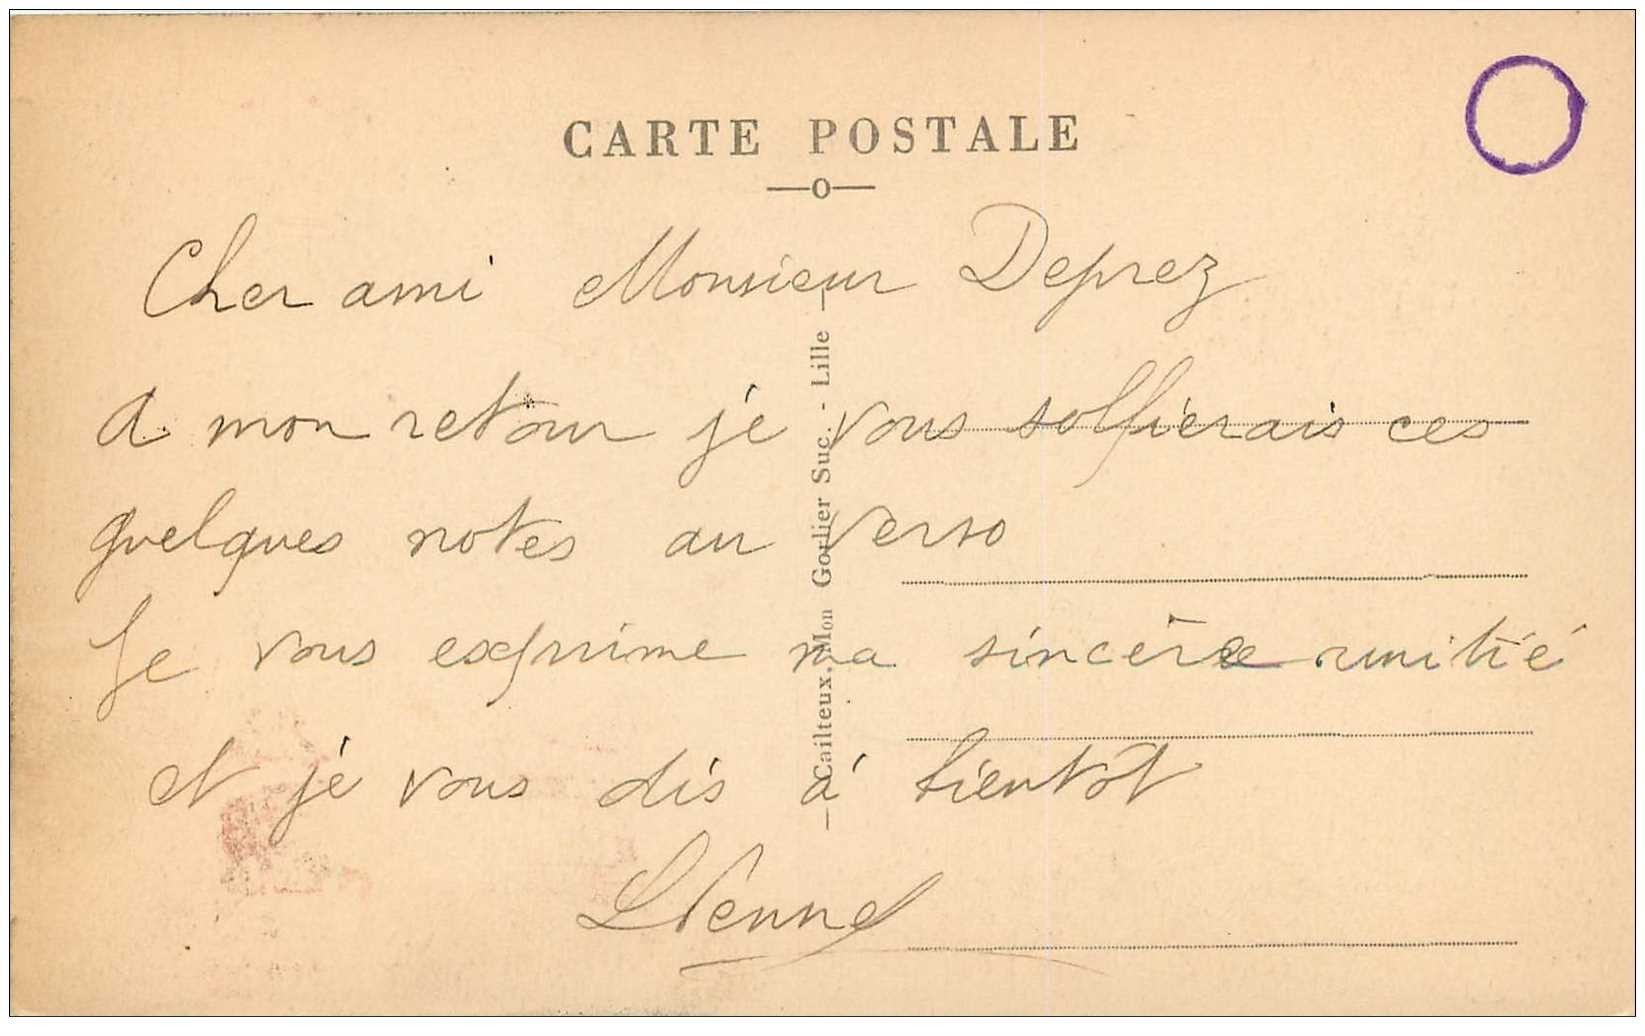 CARTE POSTALE
Cher ami Monsieur Deprez
A mon retour je vous solfierais ces
quelques notes au verso
Je vous exprime ma sincère amitié
et je vous dis à bientôt
— Cailteux, Mon Gorlier Suc. - Lille —